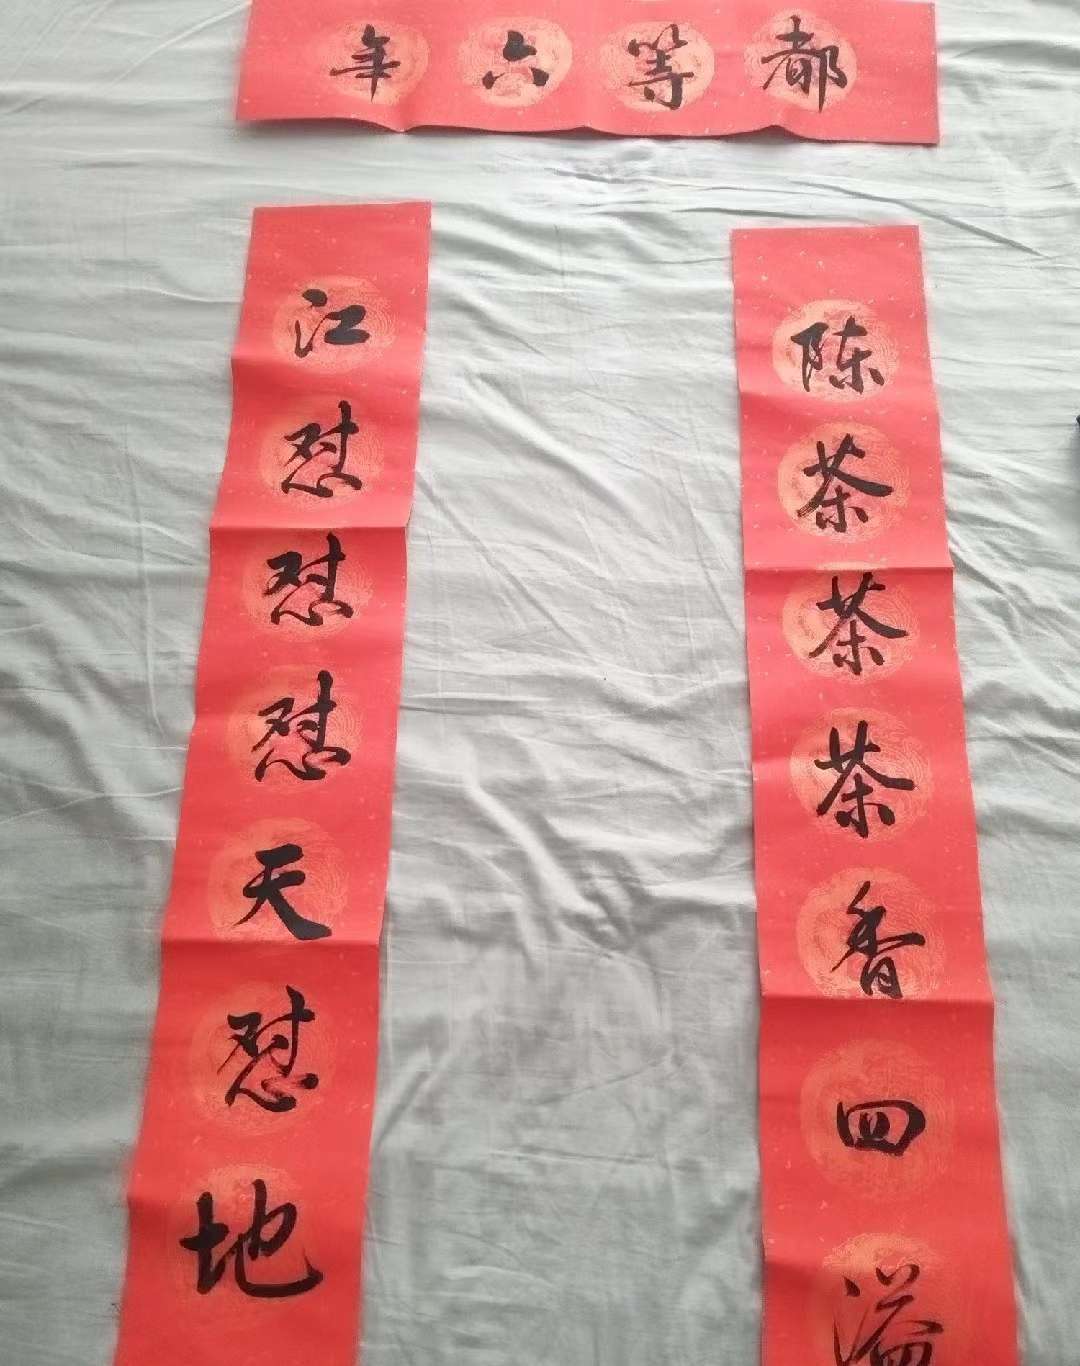 都等六年
陈茶茶茶香四溢
江怼怼怼天怼地